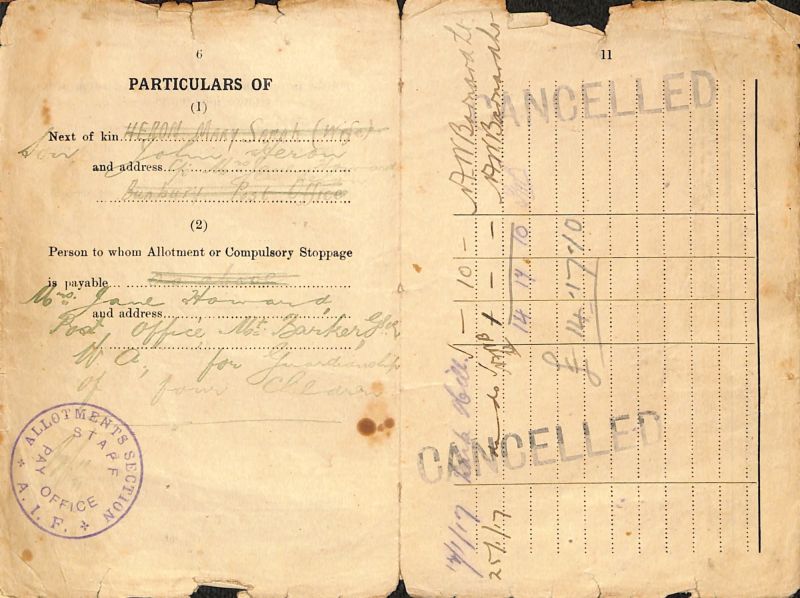 6
PARTICULARS OF
(1)
Next of kin HERON Mary Sarah (Wife)
Son John Heron
and address c/o Mrs
Bunbury Post Office
(2)
Person to whom Allotment or Compulsory Stoppage
is payable as above
Mrs. Jane Howard,
and address
Post Office Mt. Barker,
W A, for Guardianship
of four Children
ALLOTMENTS SECTION
STAFF
PAY OFFICE
A. I. F.
11
CANCELLED
CANCELLED
1/17 Hill – 10 – A W Barnard Lt
25/1/17 do 1 – – A W Barnard Lt
14 17 10
£ 14-17-10